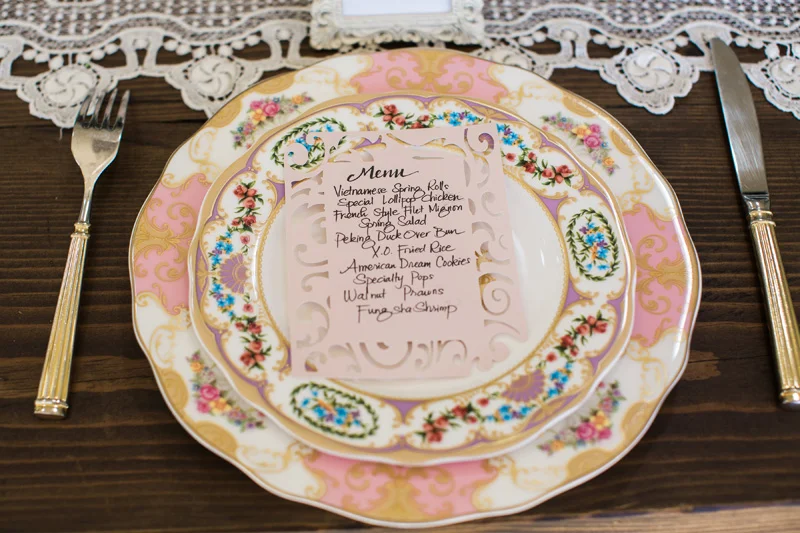 Menu
Vietnamese Spring Rolls
Special Lollipop Chicken
French Style Filet Mignon
Spring Salad
Peking Duck Over Bun
X.O. Fried Rice
American Dream Cookies
Specialty Pops
Walnut Prawns
Fungsha Shrimp